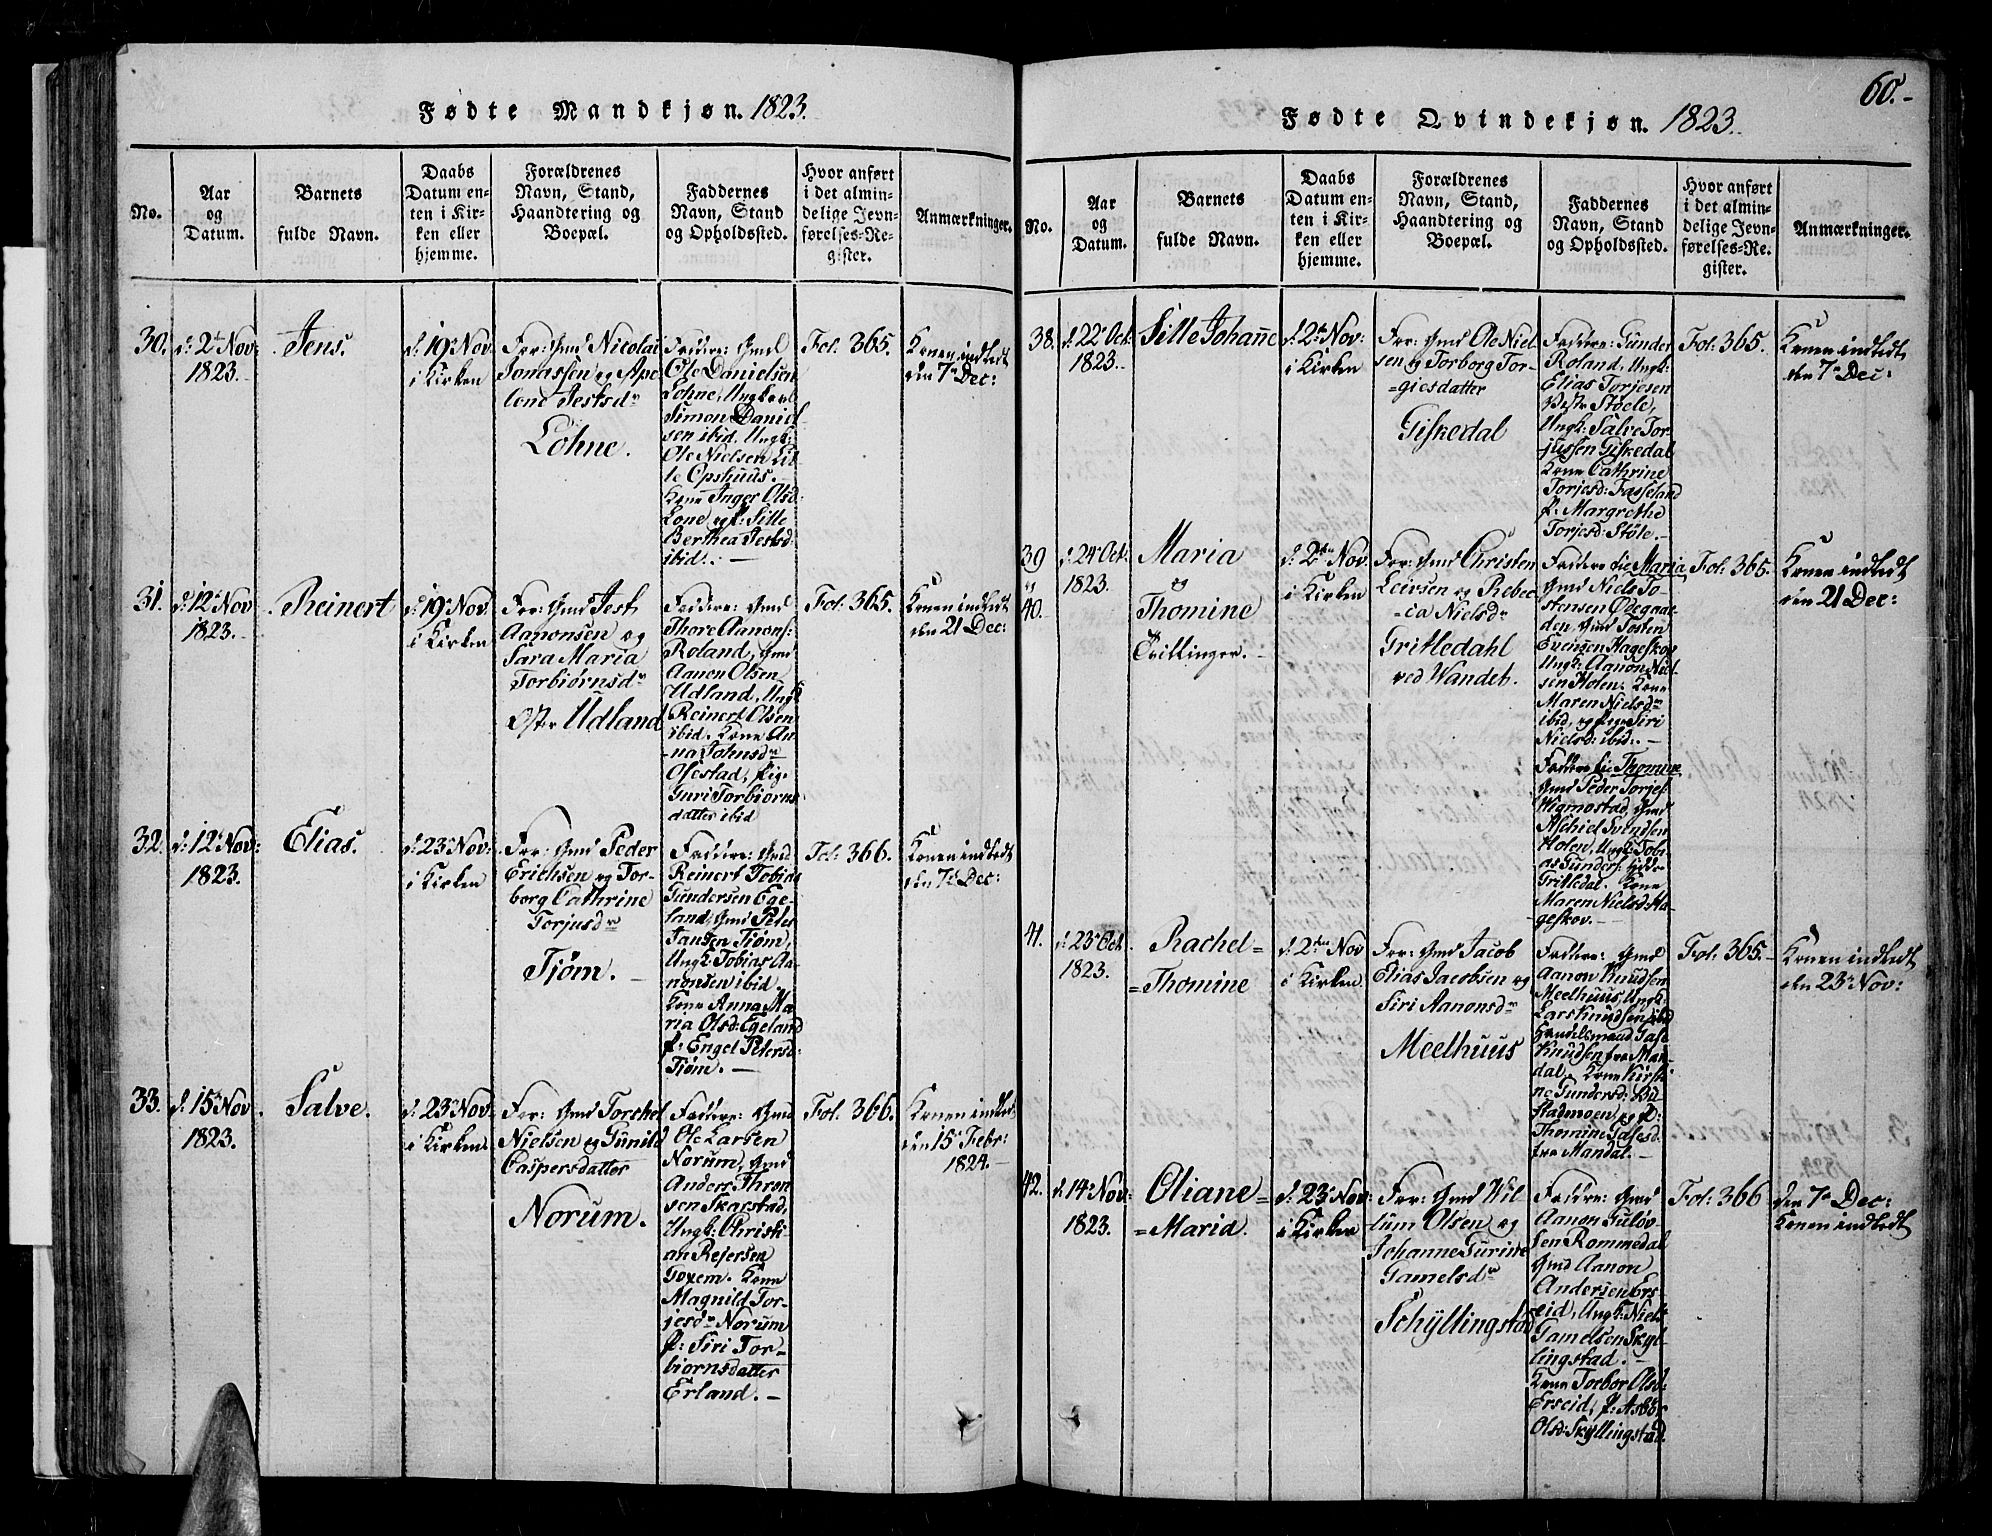 60.-
Fødte Mandkjøn. 1823.
No.
Aar
og
Datum.
Barnets
fulde Navn.
Daabs
Datum en-
ten i Kir-
ken eller
hjemme.
Forældrenes
Navn, Stand,
Haandtering og
Boepæl.
Faddernes
Navn, Stand
og Opholdssted.
Hvor anført
i det almin-
delige Jevn-
førelses-Re-
gister.
Anmærkninger.
30.
d: 2 Nov:
1823.
Jens.
d: 19 Nov.
i Kirken
For: Gmd Nicolai
Jonassen og Ape
lone Jestsdr
Lohne.
Faddere: Gmd
Ole Danielsen
Lohne, Ungkarl
Simon Daniel-
sen ibid. Ungk:
Ole Nielsen Lil-
le Opshuus.
Kone Inger Olsd:
Lone og p: Sille
Berthea Jestsd:
ibid:. —
Fol: 365.
Konen indledt
den 7de Dec:
31.
d: 12 Nov
1823.
Reinert
d: 19 Nov.
i Kirken
For: Gmd Jest
Aanonsen og
Sara Maria
Torbiørnsdr
Ostr Udland
Faddere: Gmd
Thore Aanons:
Roland, Gmd
Aanon Olsen
Udland, Ungk
Reinert Olsen
ibid. Kone An-
na Johnsdr
Ofestad, Pige
Guri Torbiorns
datter ibid
Fol: 365.
Konen indledt
den 21 Dec:
32.
d: 12 Nov:
1823.
Elias.
d: 23 Nov:
i Kirken
For: Gmd Peder
Erichsen og Tor-
borg Cathrine
Torjusdr
Tjøm. —
Faddere: Gmd
Reinert Tobias
Gundersen Ege-
land, Gmd Peter
Jansen Tjøm,
Ungk: Tobias Aa-
nonsen ibid.
Kone Anna Ma-
ria Olsd: Egeland
p: Engel Petersd:
Tjøm. —
Fol: 366.
Konen indledt
den 7de Dec:
33.
d: 15 Nov
1823.
Salve.
d: 23 Nov:
i Kirken
For: Gmd Torchel
Nielsen og Gunild
Caspersdatter
Norum.
Faddere: Gmd
Ole Larsen
Norum, Gmd
Anders Thron
sen Skarstad,
Ungk: Christi-
an Rejersen
Foxem. Kone
Magnild Tor-
jesdr Norum
p: Siri Tor-
biornsdatter
Erland. —
Fol: 366.
Konen indledt
den 15 Febr:
1824. —
Fødte Qvindekjøn. 1823.
No.
Aar
og
Datum.
Barnets
fulde Navn.
Daabs
Datum en-
ten i Kir-
ken eller
hjemme.
Forældrenes
Navn, Stand,
Haandtering og
Boepæl.
Faddernes
Navn, Stand
og Opholdssted.
Hvor anført
i det almin-
delige Jevn-
førelses-Re-
gister.
Anmærkninger.
38.
d: 22 Oct.
1823.
Sille Johanne
d: 2den Nov:
i Kirken
For: Gmd Ole Niel
sen og Torborg Tor-
=giesdatter
Giskedal
Faddere: Gunder
Roland, Ungk:
Elias Torjesen
Vestr Støele,
Ungk: Salve Tor-
jussen Giskedal
Kone Cathrine
Torjesd: Fasseland
p. Margrethe
Torjesd: Støle. —
Fol: 365.
Konen indledt
den 7de Dec:
39
og
40.
d: 24 Oct:
1823.
Maria
og
Thomine
Tvillinger. —
d: 2den Nov.
i Kirken
For: Gmd Christen
Leirsen og Rebec
ca Nielsdr
Gritledahl
ved Wandet.
Faddere til Maria
Gmd Niels To-
stensen Ødegaar
den, Gmd Tosten
Evensen Hageskov
Ungk: Aanon Niel-
sen Holen. Kone
Maren Nielsdr
ibid, og pige Siri
Nielsd: ibid:. —
Faddere til Thomine
Gmd Peder Torjes
Wigmostad, Gmd
Aschiel Svendsen
Holen, Ungk: Tobi
as Gunders:
Gritledal. Kone
Maren Nielsd: Ha-
geskov. —
Fol: 365.
Konen indledt
den 21 Dec:
41.
d: 23 Oct.
1823.
Rachel=
=Thomine
d: 2den Nov
i Kirken
For: Gmd Jacob
Elias Jacobsen og
Siri Aanonsdr
Meelhuus
Faddere: Gmd
Aanon Knudsen
Meelhuus, Ungk.
Lars Knudsen ibid
Handelsmand Tase
Knudsen fra Man-
dal. Kone Kirsti-
ne Gundersd: Bu-
stadmoen og p:
Thomine Tasesd:
fra Mandal. —
Fol: 365. —
Konen indledt
den 23 Nov:
42.
d. 14 Nov:
1823.
Oliane=
=Maria.
d: 23 Nov:
i Kirken
For: Gmd Wil-
lum Olsen og
Johanne Turine
Gamelsdr
Schÿllingstad
Faddre: Gmd
Aanon Guløv-
sen Rommedal
Gmd Aanon
Andersen Ers-
eid, Ungk: Niels
Gamelsen Skyl-
lingstad. —
Kone Torbor Olsd:
Erseid, p: Asbor
Olsd: Skyllingstad.
Fol: 366
den 7de Dec:
Konen indledt